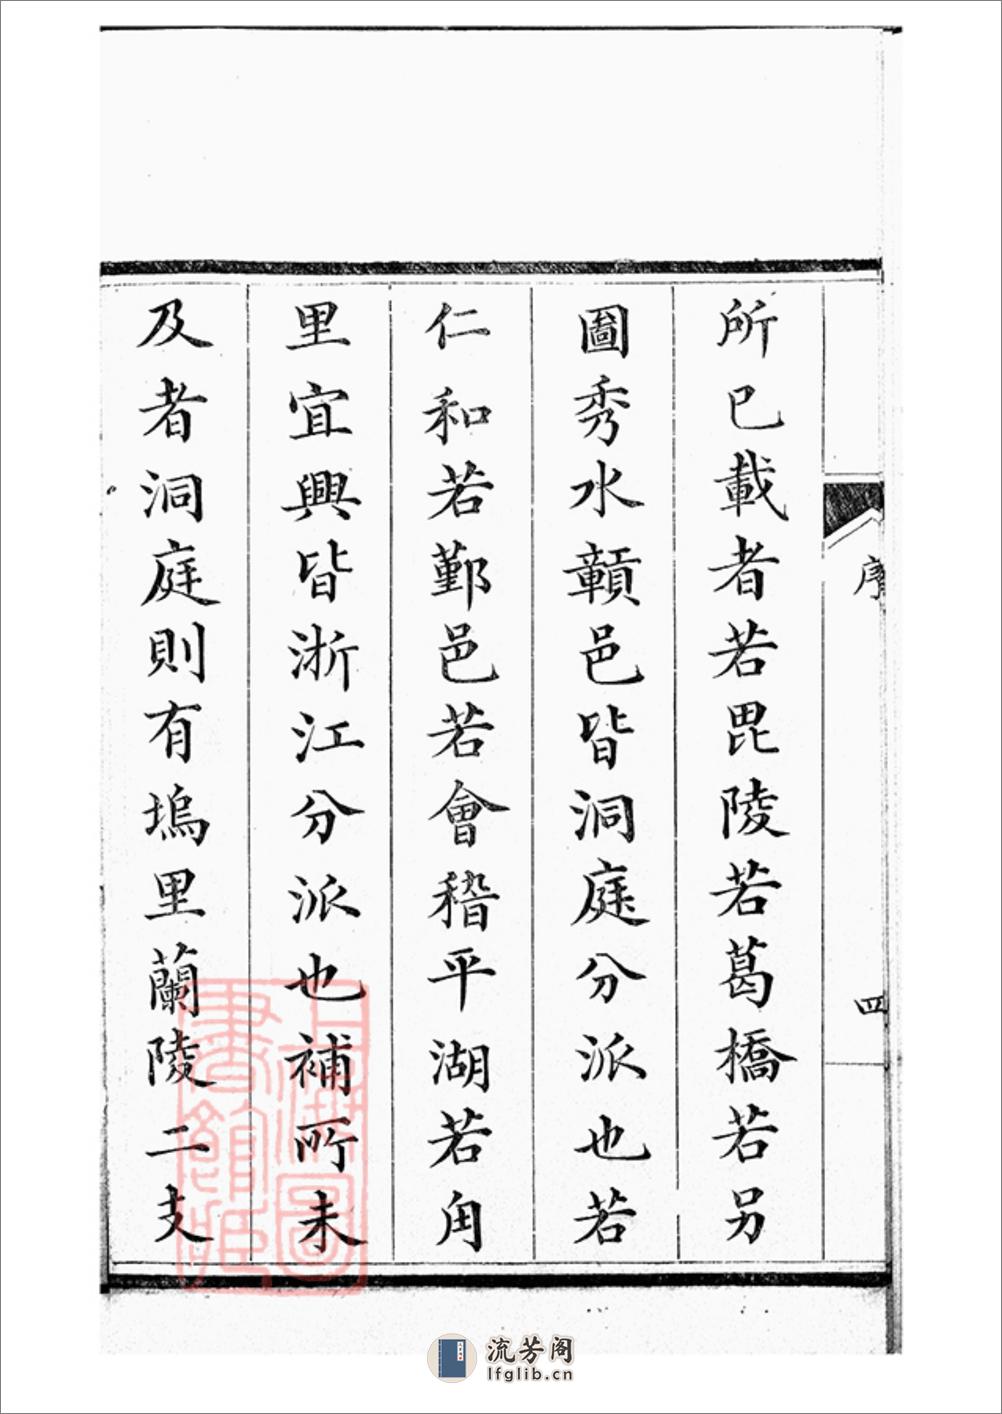 所已載者若毘陵若葛橋若另
圖秀水贑邑皆洞庭分派也若
仁和若鄞邑若會稽平湖若甪
里宜興皆浙江分派也補所未
及者洞庭則有塢里蘭陵二支
序
四
上海圖書館藏
流芳阁
lfglib.cn